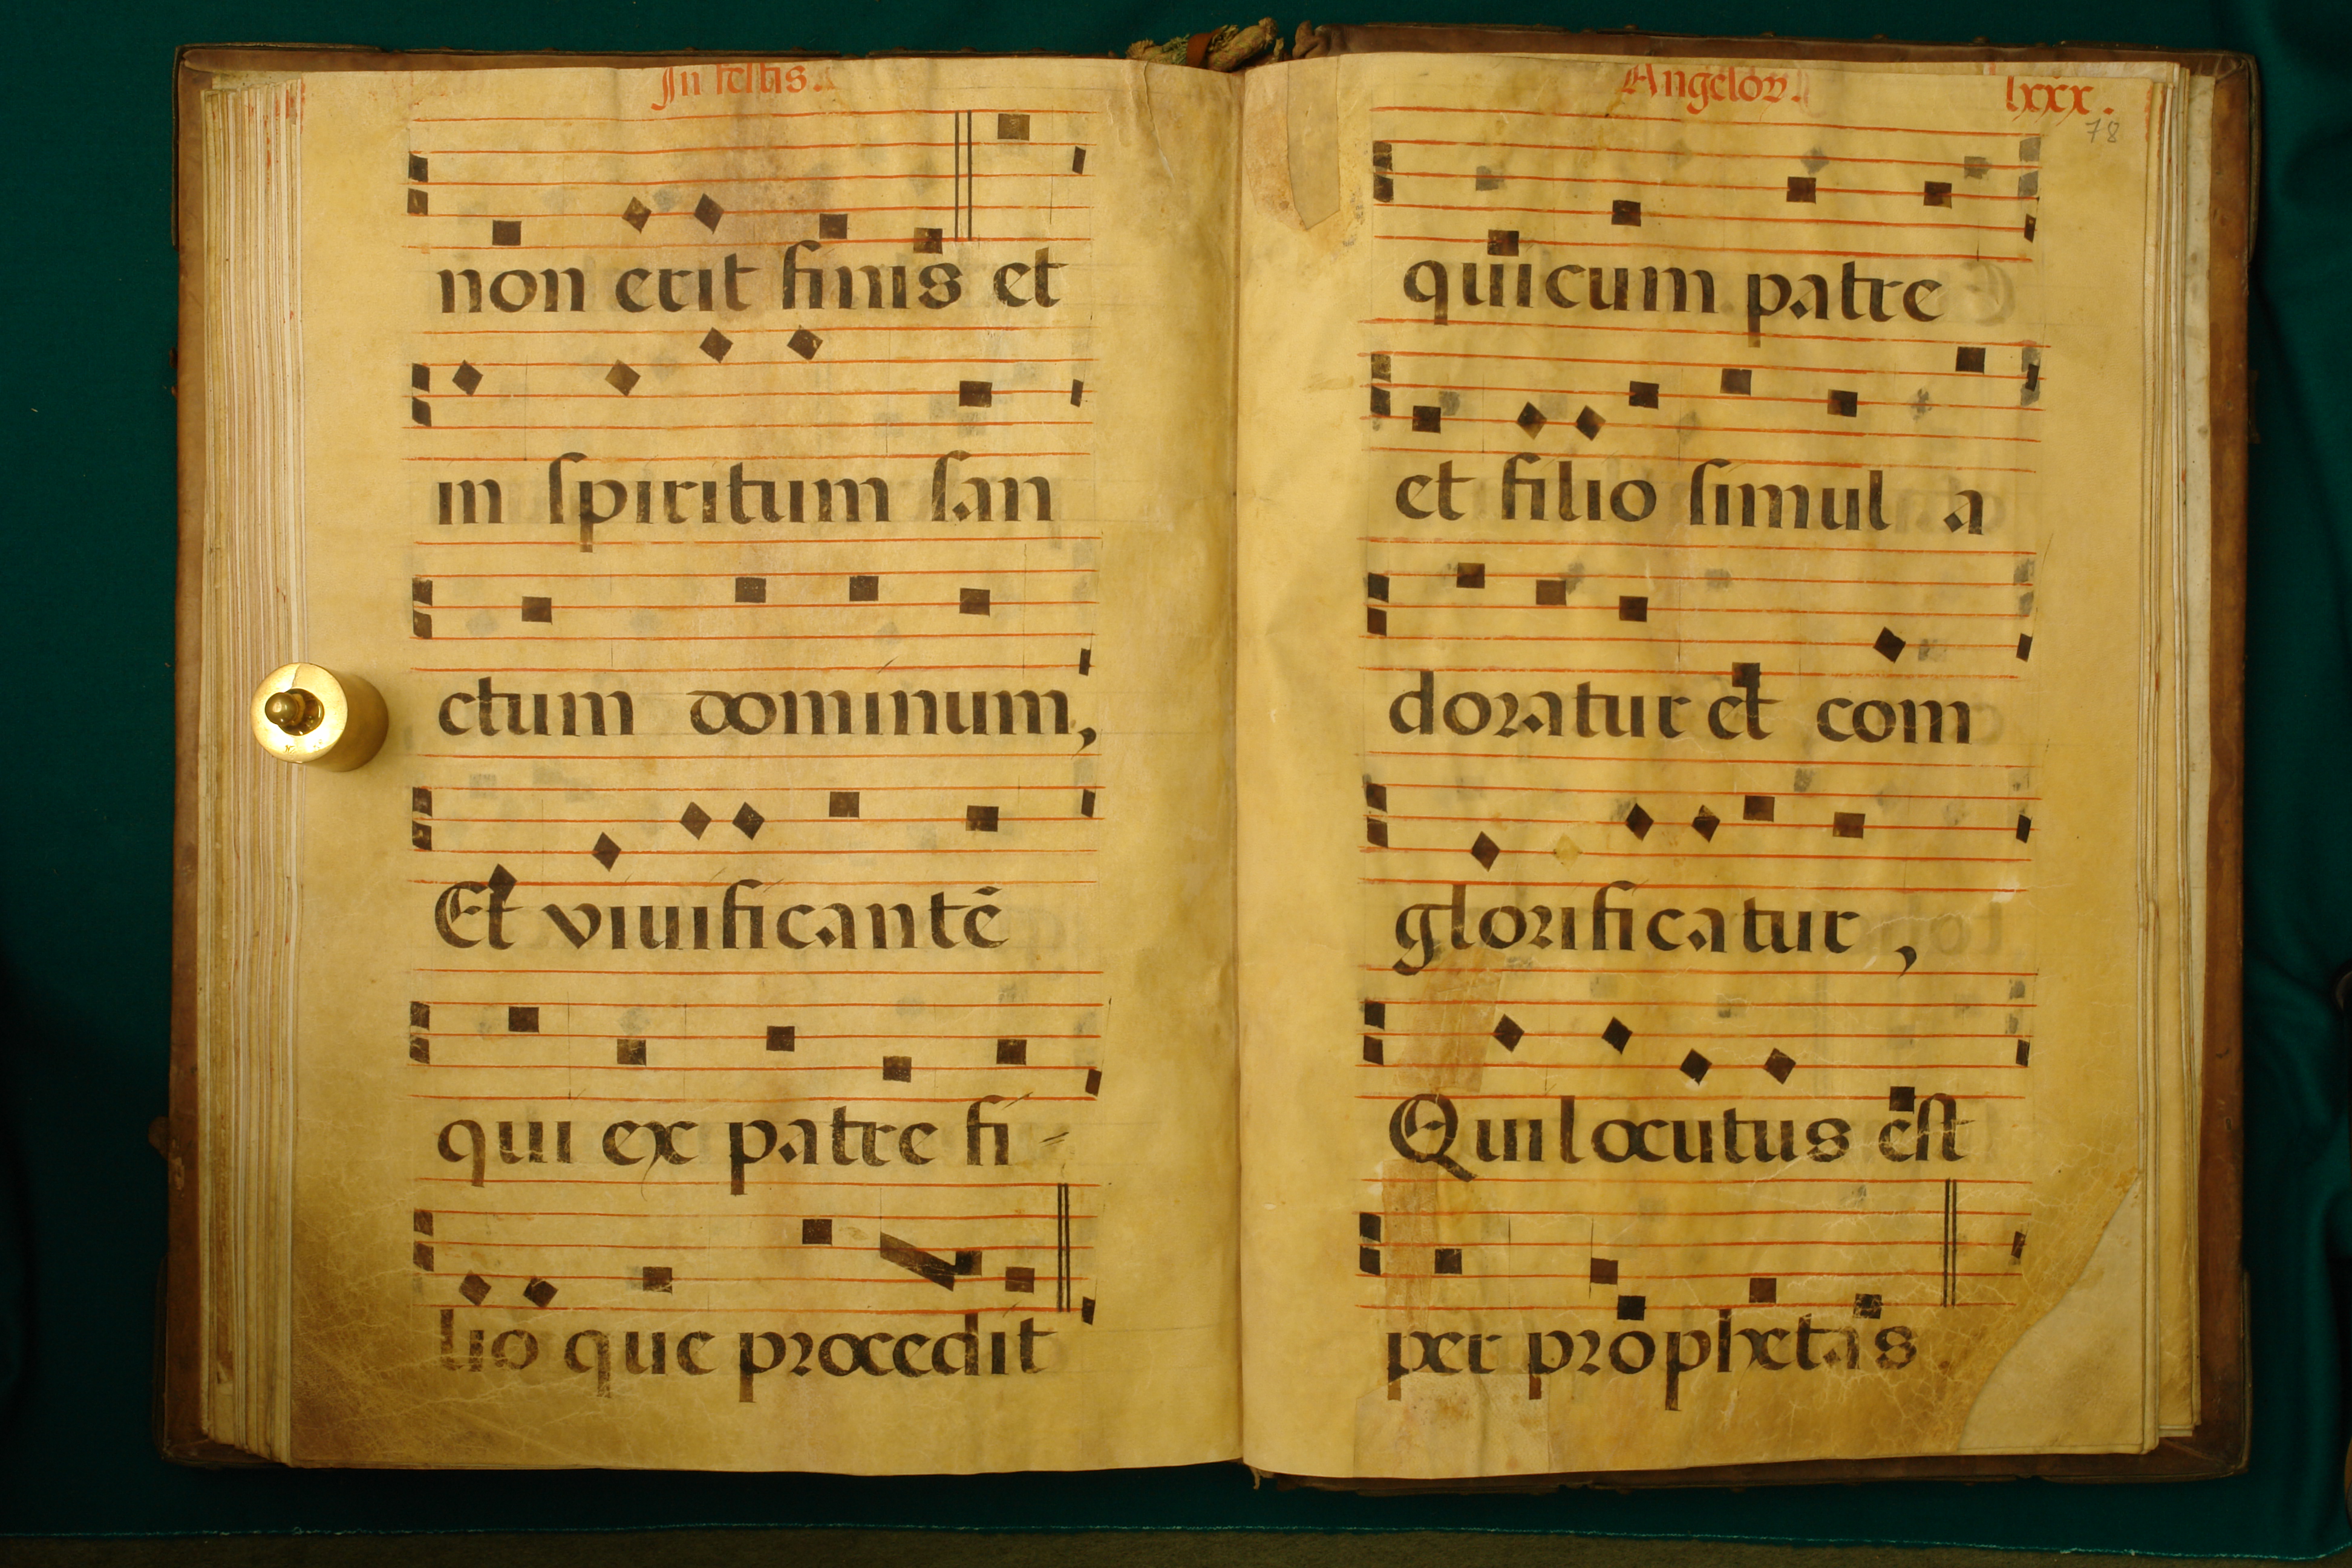 In festis.
non erit finis et
in spiritum san
ctum dominum,
Et viuificantē
qui ex patre fi-
lio que procedit
Angeloꝝ. lxxx.
78
qui cum patre
et filio simul a
doratur et com
glorificatur,
Qui locutus est
per prophetas.